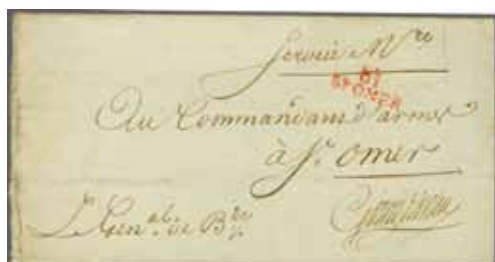 Service M.re
61
ST OMER
Au Commandant d'armes
à St. omer
Le Gén.al de B.de